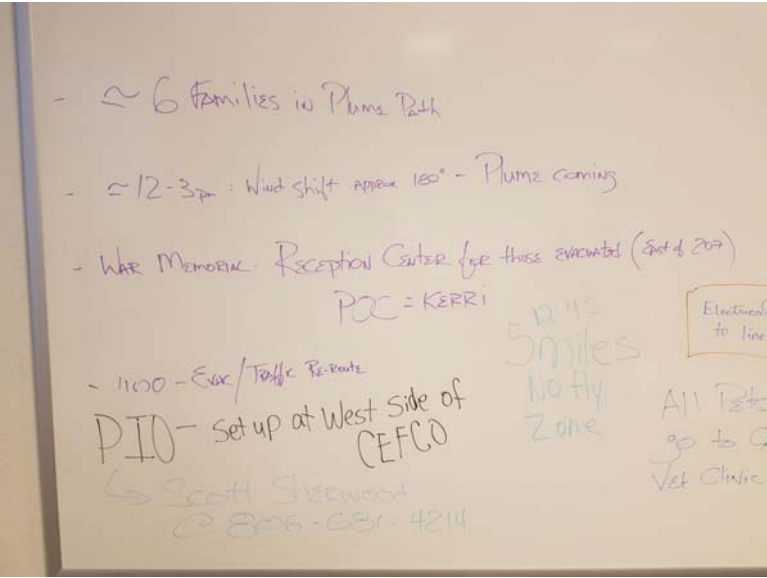 - ≃ 6 Families in Plume Path
- ≃ 12-3pm : Wind Shift Approx 180° - Plume coming
- War Memorial - Reception Center for those evacuated (East of 207)
POC = Kerri
- 1100 - Evac/Traffic Re-Route
PIO - set up at West Side of
CEFCO
↳ Scott Sherwood
@ 806-681-4214
12:45
5 miles
No fly
Zone
Electrical
to line
All Pets
go to
Vet Clinic